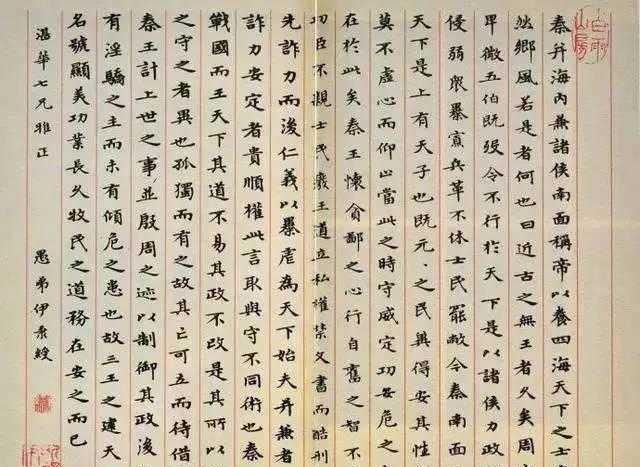 秦并海內兼諸侯南面稱帝以養四海天下之士
然鄉風若是者何也曰近古之無王者久矣周
卑微五伯既歿令不行於天下是以諸侯力政
侵弱眾暴寡兵革不休士民罷敝今秦南面
天下是上有天子也既元〻之民冀得安其性
莫不虛心而仰上當此之時守威定功安危之
在於此矣秦王懷貪鄙之心行自奮之智不
功臣不親士民廢王道立私權禁文書而酷刑
先詐力而後仁義以暴虐為天下始夫并兼者
詐力安定者貴順權此言取與守不同術也秦
戰國而王天下其道不易其政不改是其所以
之守之者異也孤獨而有之故其亡可立而待借
秦王計上世之事並殷周之迹以制御其政後
有淫驕之主而未有傾危之患也故三王之建天
名號顯美功業長久牧民之道務在安之而已
華七兄雅正
愚弟伊秉綬